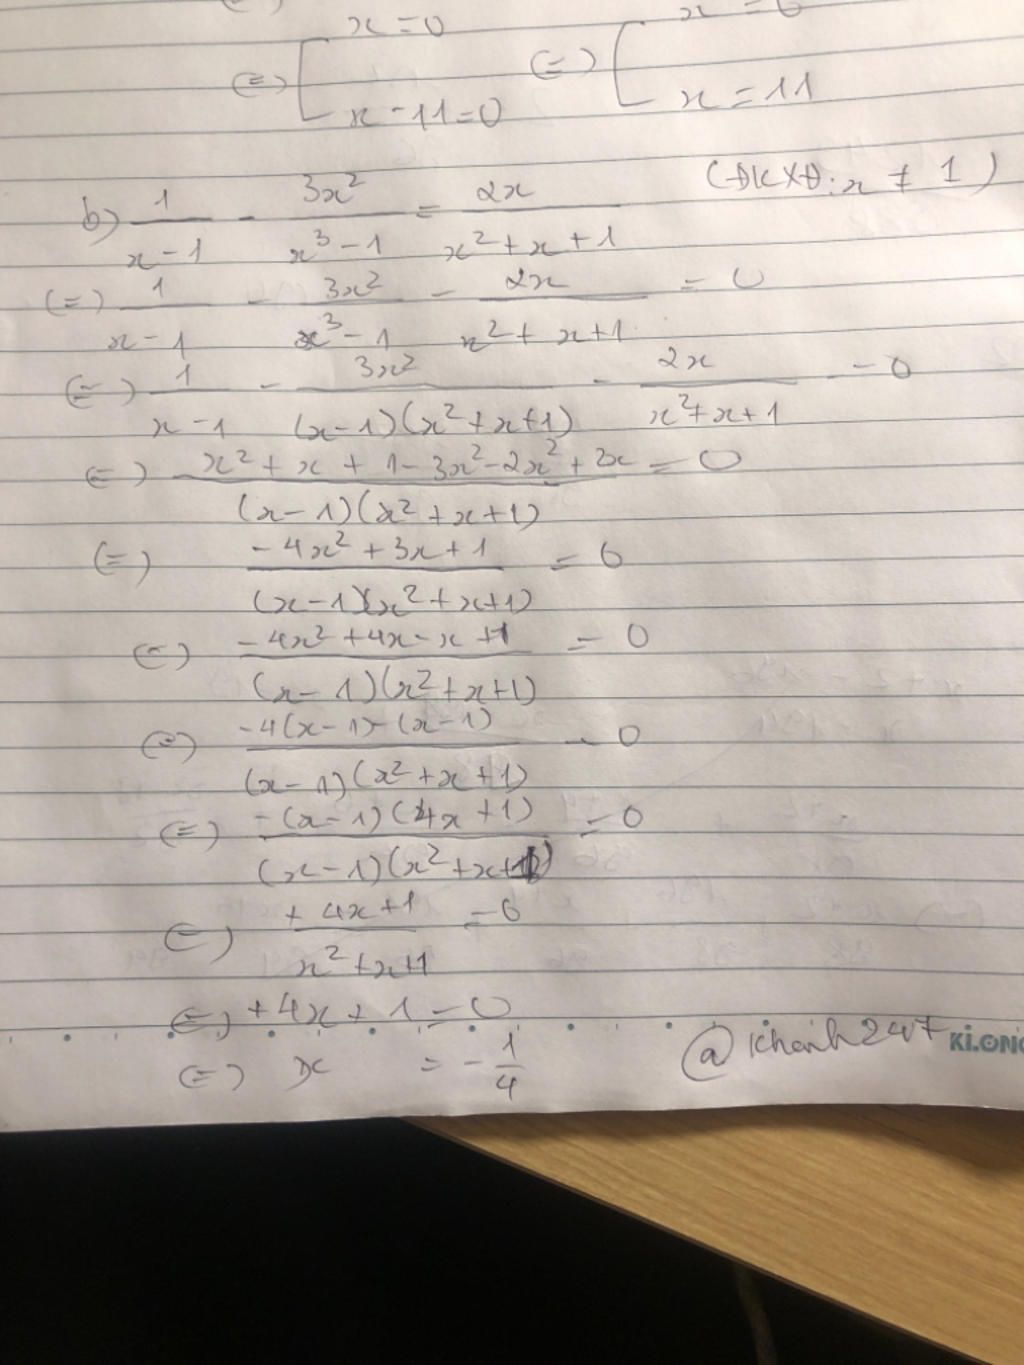 x = 0 x = 0
(=) [ (=) [
x - 11 = 0 x = 11
b) 1/(x-1) - 3x²/(x³-1) = 2x/(x²+x+1) (ĐKXĐ: x ≠ 1)
(=) 1/(x-1) - 3x²/(x³-1) - 2x/(x²+x+1) = 0
(=) 1/(x-1) - 3x²/((x-1)(x²+x+1)) - 2x/(x²+x+1) = 0
(=) (x²+x+1-3x²-2x²+2x)/((x-1)(x²+x+1)) = 0
(=) (-4x²+3x+1)/((x-1)(x²+x+1)) = 0
(=) (-4x²+4x-x+1)/((x-1)(x²+x+1)) = 0
(=) (-4(x-1)-(x-1))/((x-1)(x²+x+1)) = 0
(=) (-(x-1)(4x+1))/((x-1)(x²+x+1)) = 0
(=) (+4x+1)/(x²+x+1) = 0
(=) +4x+1 = 0
(=) x = -1/4
@Khanh2407 KI.ONG